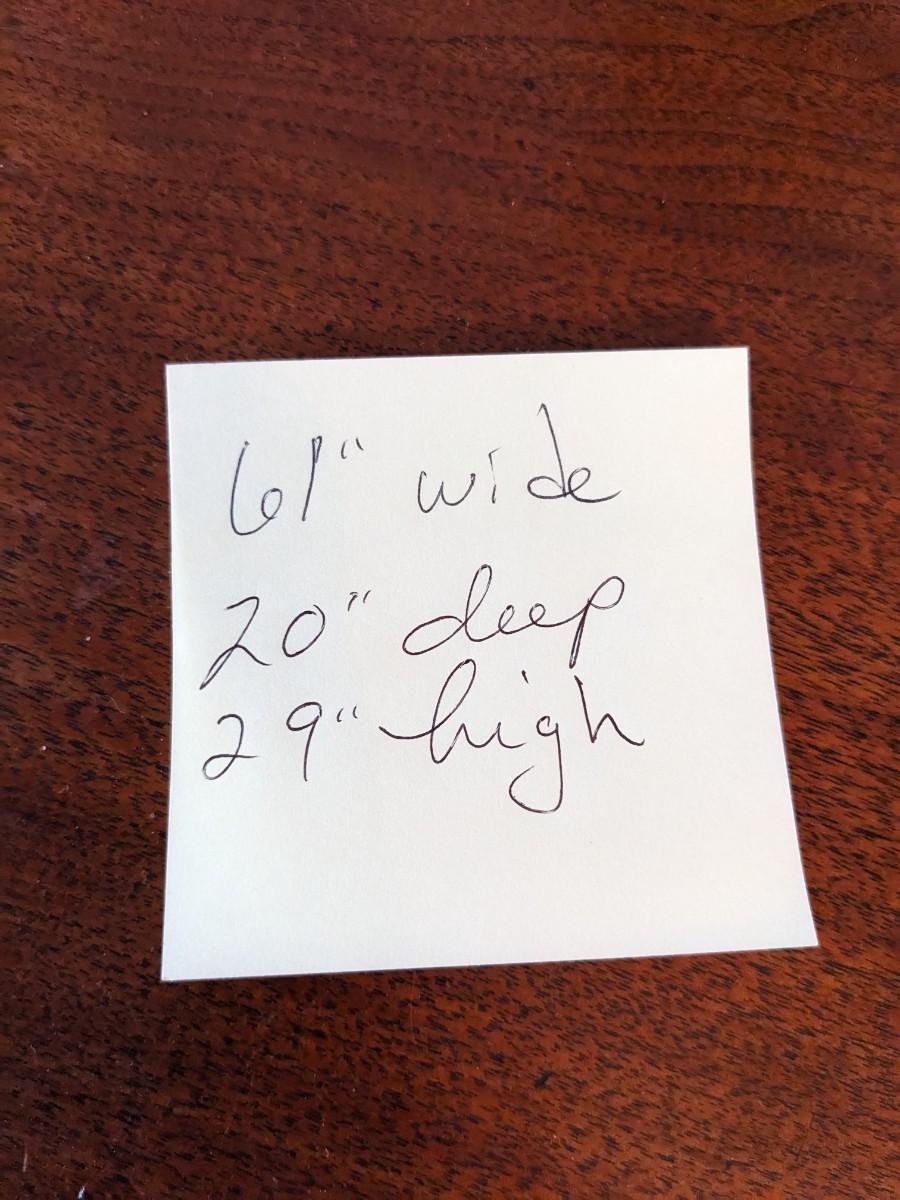 61" wide
20" deep
29" high